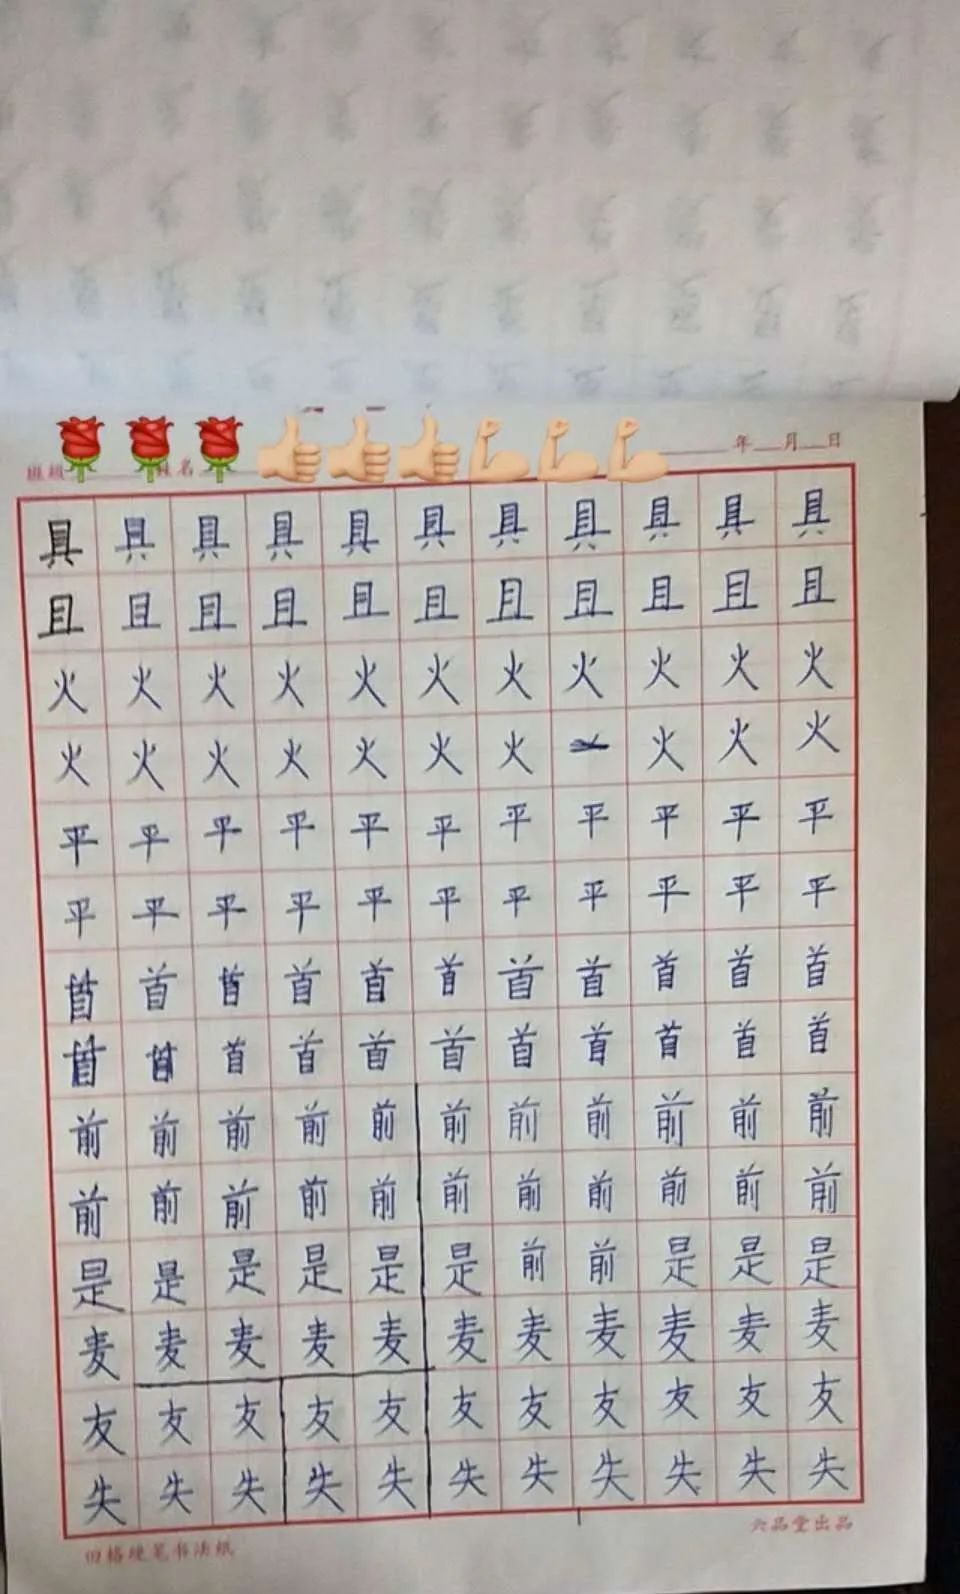 班级 姓名 年 月 日
具 具 具 具 具 具 具 具 具 具 具
且 且 且 且 且 且 且 且 且 且 且
火 火 火 火 火 火 火 火 火 火 火
火 火 火 火 火 火 火 火 火 火
平 平 平 平 平 平 平 平 平 平 平
平 平 平 平 平 平 平 平 平 平 平
首 首 首 首 首 首 首 首 首 首 首
首 首 首 首 首 首 首 首 首 首 首
前 前 前 前 前 前 前 前 前 前 前
前 前 前 前 前 前 前 前 前 前 前
是 是 是 是 是 是 前 前 是 是 是
麦 麦 麦 麦 麦 麦 麦 麦 麦 麦 麦
友 友 友 友 友 友 友 友 友 友 友
失 失 失 失 失 失 失 失 失 失 失
回格硬笔书法纸 六品堂出品